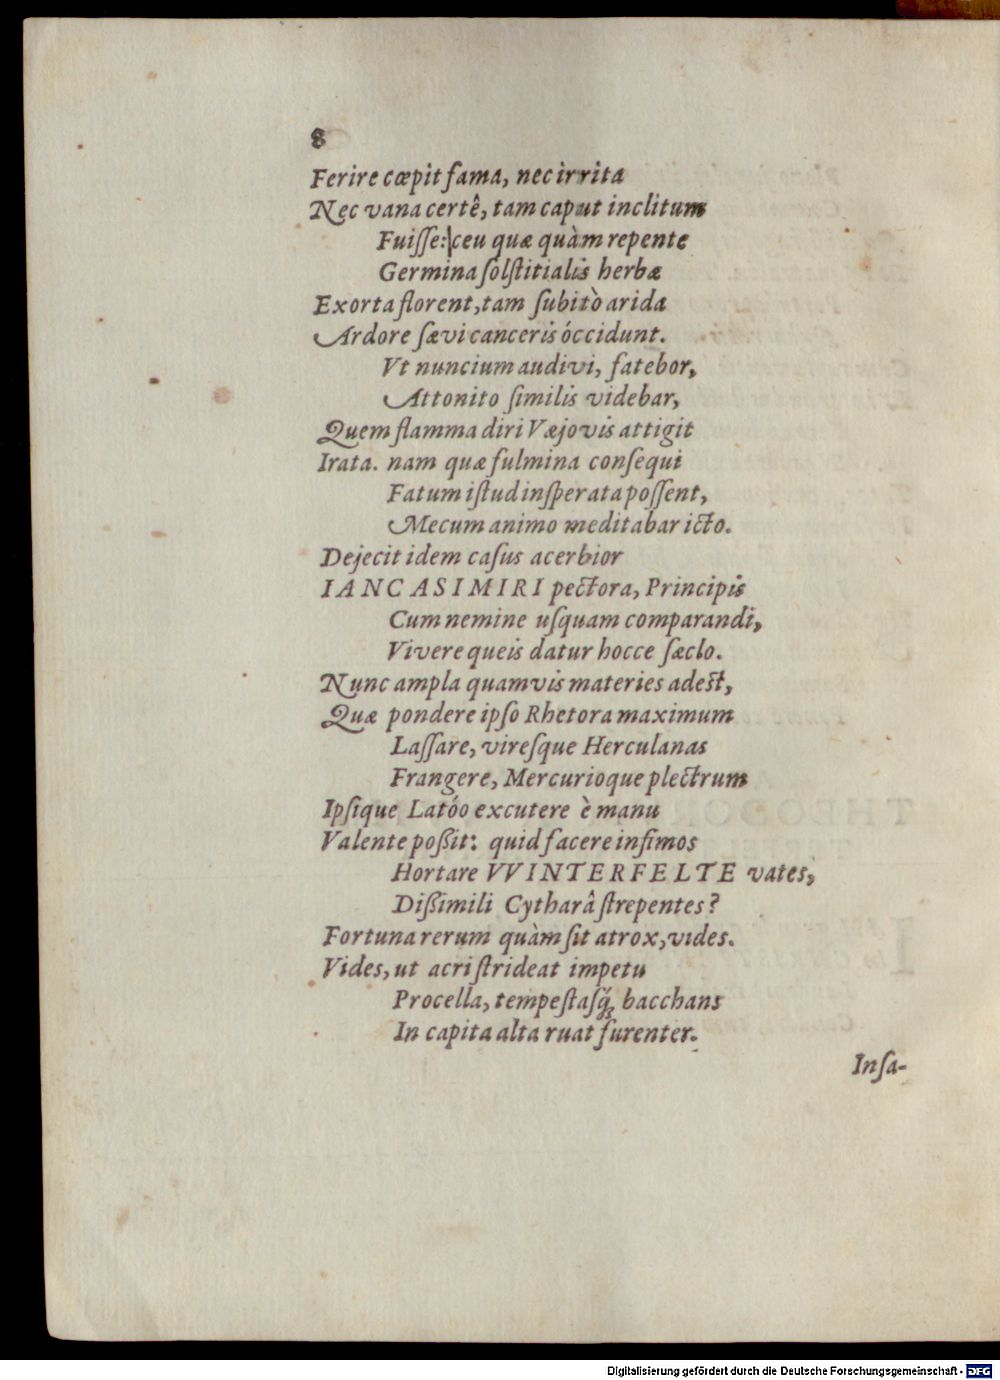 8
Ferire cœpit fama, nec irrita
Nec vana certê, tam caput inclitum
Fuiſſe: ceu quæ quàm repente
Germina ſolſtitialis herbæ
Exorta florent, tam ſubitò arida
Ardore ſævi canceris óccidunt.
Vt nuncium audivi, fatebor,
Attonito ſimilis videbar,
Quem flamma diri Væjovis attigit
Irata. nam quæ fulmina conſequi
Fatum iſtud inſperata poſſent,
Mecum animo meditabar icto.
Dejecit idem caſus acerbior
IANCASIMIRI pectora, Principis
Cum nemine uſquam comparandi,
Vivere queis datur hocce ſæclo.
Nunc ampla quamvis materies adeſt,
Quæ pondere ipſo Rhetora maximum
Laſſare, vireſque Herculanas
Frangere, Mercurioque plectrum
Ipſique Latóo excutere è manu
Valente poßit: quid facere infimos
Hortare VVINTERFELTE vates,
Dißimili Cytharâ ſtrepentes?
Fortuna rerum quàm ſit atrox, vides.
Vides, ut acri ſtrideat impetu
Procella, tempeſtasq́; bacchans
In capita alta ruat furenter.
Inſa-
Digitalisierung gefördert durch die Deutsche Forschungsgemeinschaft - DFG